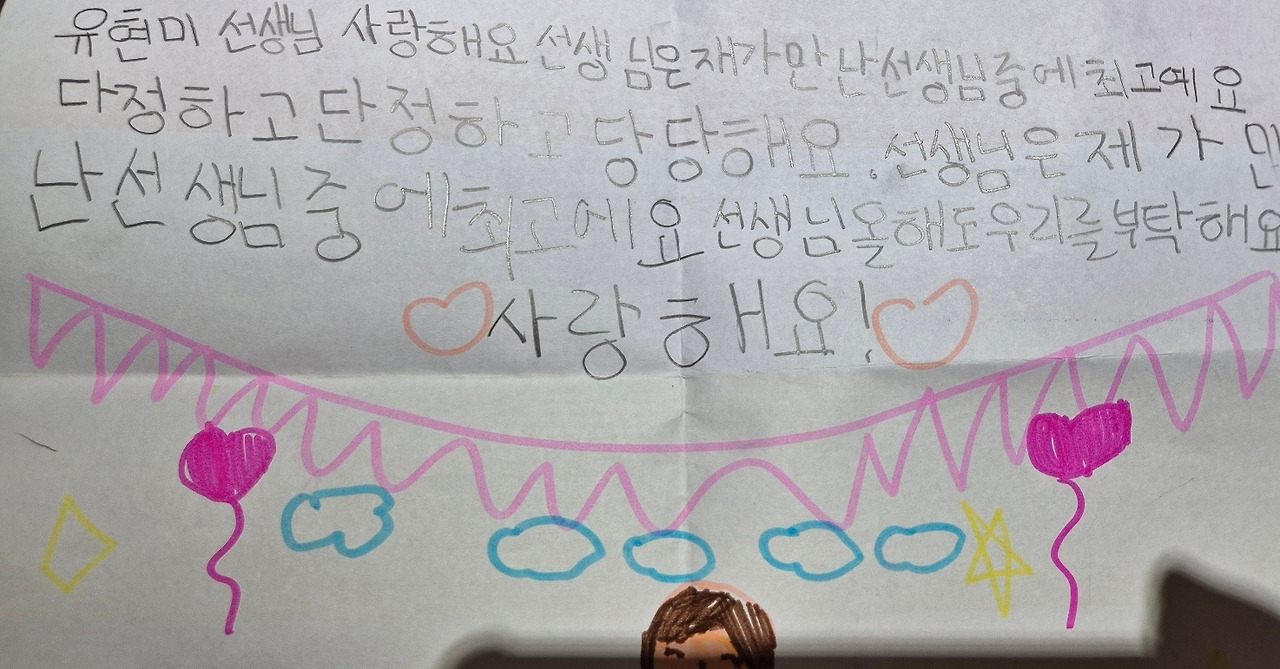 유현미 선생님 사랑해요 선생님은 재가 만난 선생님 중에 최고예요
다정하고 단정하고 당당해요. 선생님은 제가 만
난 선생님 중에 최고에요 선생님 올해도 우리를 부탁해요
사랑해요!